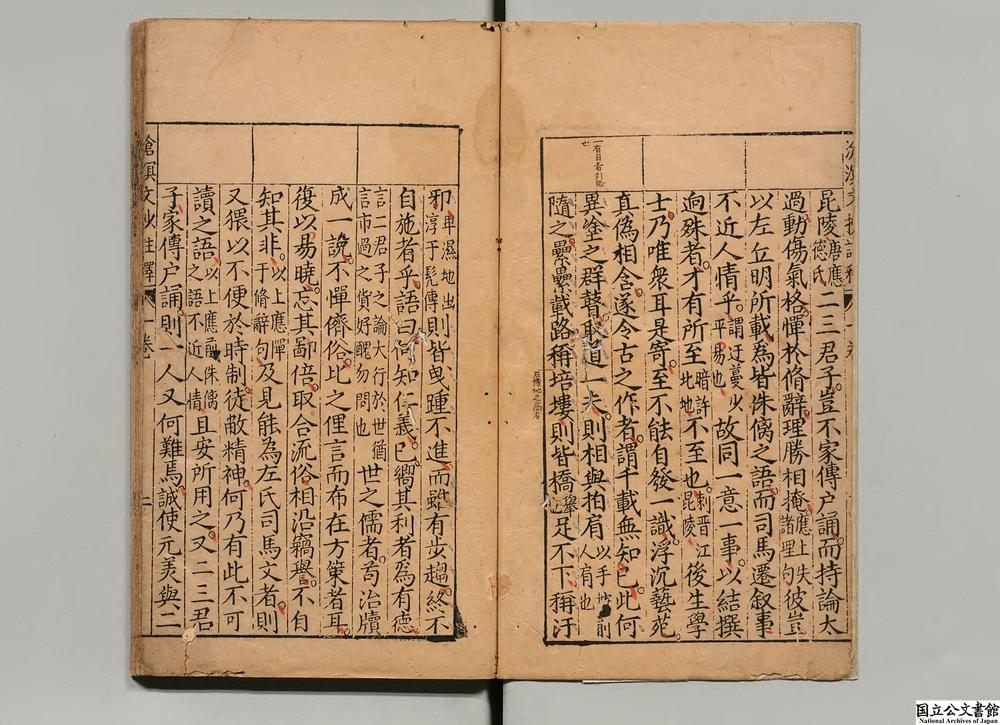 昆陵唐應德氏二三君子豈不家傳户誦而持論太
過動傷氣格憚於脩辭理勝相掩應上失諸理句彼豈
以左丘明所載為皆侏㒧之語而司馬遷叙事
不近人情乎謂迂蔓少平易也故同一意一事以結撰
逈殊者才有所至暗許此地不至也刺晋江昆陵後生學
士乃唯衆耳是寄至不能自發一識浮沉藝苑
真偽相含遂令古之作者謂千載無知已此何
異塗之群瞽取道一夫則相與拍肩以手拊前人肩也
隨之纍纍載路稱培塿則皆橋舉也足不下稱汙
一有目者引路也
邪卑濕地出淳于髠傳則皆曳踵不進而雖有步趨終不
自施者乎語曰何知仁義已嚮其利者為有德
言二君子之論大行於世猶言市過之貨好醒勿問也世之儒者苟治牘
成一說不憚儕俗比之俚言而布在方策者耳
復以易曉忘其鄙倍取合流俗相沿竊譽不自
知其非以上應憚于脩辭句及見能為左氏司馬文者則
又猥以不便於時制徒敝精神何乃有此不可
讀之語以上應前侏㒧之語不近人情且安所用之又二三君
子家傳户誦則一人又何難焉誠使元美與二
滄溟文抄註釋 一卷 二
国立公文書館
National Archives of Japan